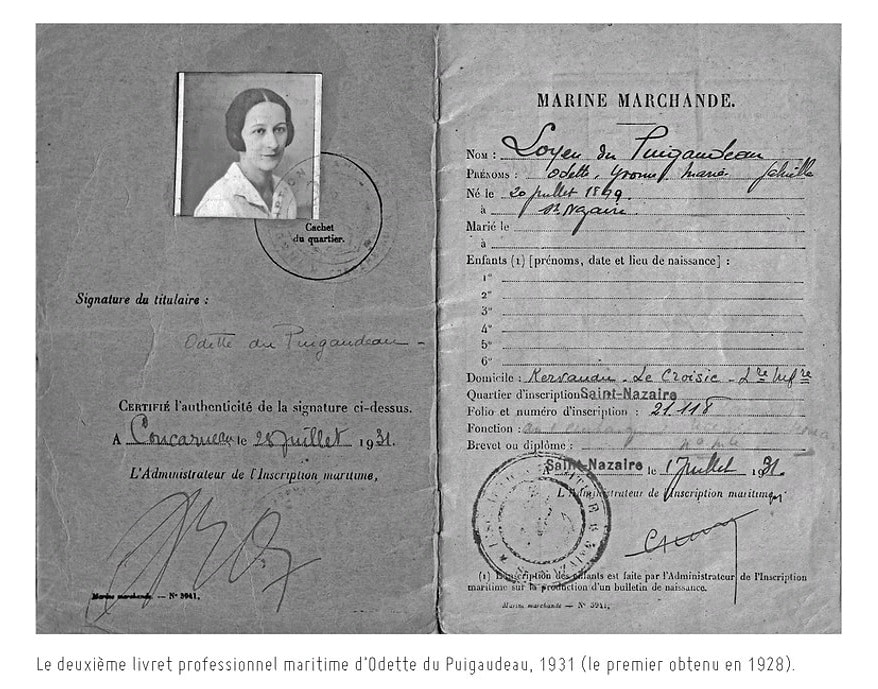 Cachet
du quartier.
Signature du titulaire :
Odette du Puigaudeau
CERTIFIÉ l'authenticité de la signature ci-dessus.
A Concarneau le 28 juillet 1931.
L'Administrateur de l'Inscription maritime,
Marine marchande. — N° 3941.
MARINE MARCHANDE.
NOM : Loyen du Puigaudeau
PRÉNOMS : Odette, Yvonne, Marie
Né le 20 juillet 1899.
à St Nazaire.
Marié le
à
Enfants (1) [prénoms, date et lieu de naissance] :
1°
2°
3°
4°
5°
6°
Domicile : Kervaudu - Le Croisic - Lre Infre
Quartier d'inscription Saint-Nazaire
Folio et numéro d'inscription : 21.118
Fonction :
Brevet ou diplôme :
Saint-Nazaire le 17 juillet 1931.
L'Administrateur de l'Inscription maritime,
(1) L'inscription des enfants est faite par l'Administrateur de l'Inscription
maritime sur la production d'un bulletin de naissance.
Marine marchande — N° 3941.
Le deuxième livret professionnel maritime d'Odette du Puigaudeau, 1931 (le premier obtenu en 1928).